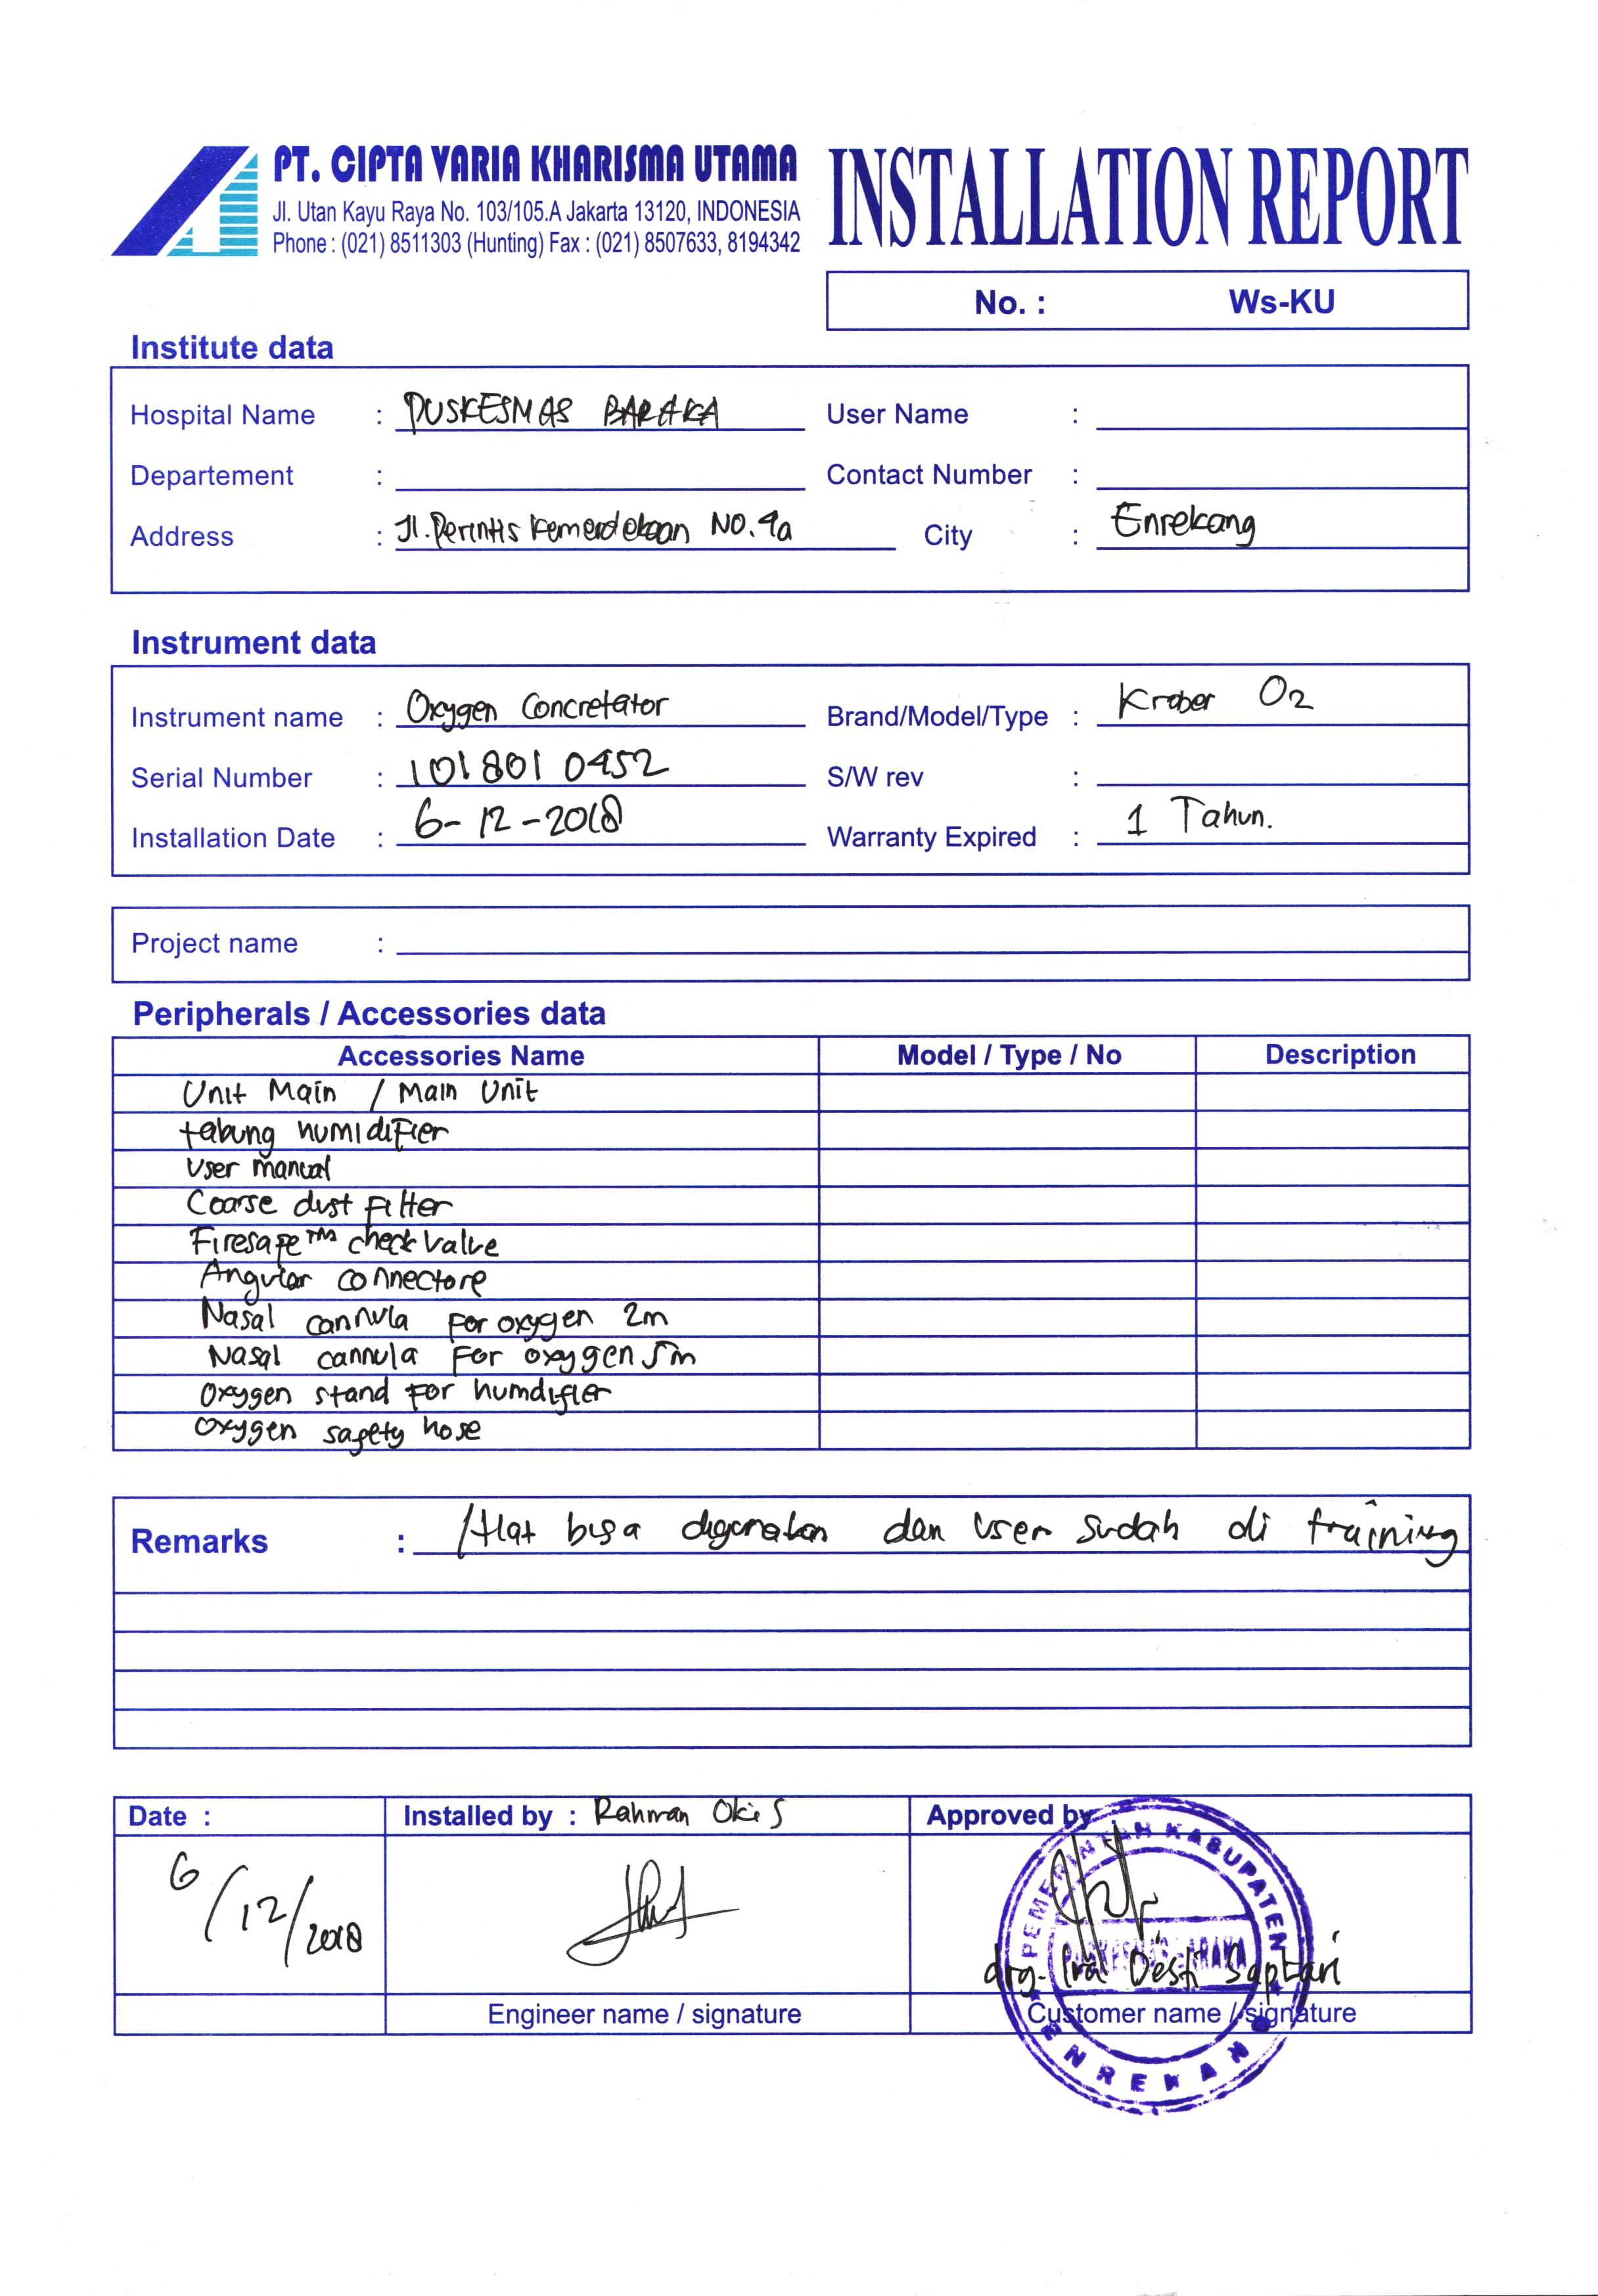 PT. CIPTA VARIA KHARISMA UTAMA
Jl. Utan Kayu Raya No. 103/105.A Jakarta 13120, INDONESIA
Phone : (021) 8511303 (Hunting) Fax : (021) 8507633, 8194342
INSTALLATION REPORT
No. : Ws-KU
Institute data
Hospital Name : PUSKESMAS BARAKA User Name :
Departement : Contact Number :
Address : Jl. Perintis Kemerdekaan NO. 4a City : Enrekang
Instrument data
Instrument name : Oxygen Concretator Brand/Model/Type : Krober O2
Serial Number : 1018010452 S/W rev :
Installation Date : 6-12-2018 Warranty Expired : 1 Tahun.
Project name :
Peripherals / Accessories data
Accessories Name Model / Type / No Description
Unit Main / Main Unit
tabung humidifier
User manual
Coarse dust filter
Firesafe™ check valve
Angular connectore
Nasal cannula for oxygen 2m
Nasal cannula for oxygen 5m
Oxygen stand for humdifier
Oxygen safety hose
Remarks : Alat bisa digunakan dan user sudah di training
Date : Installed by : Rahman Oki S Approved by
6/12/2018
PEMERINTAH KABUPATEN
PUSKESMAS BARAKA
drg. Ira Desti Saptari
Engineer name / signature Customer name / signature
ENREKANG